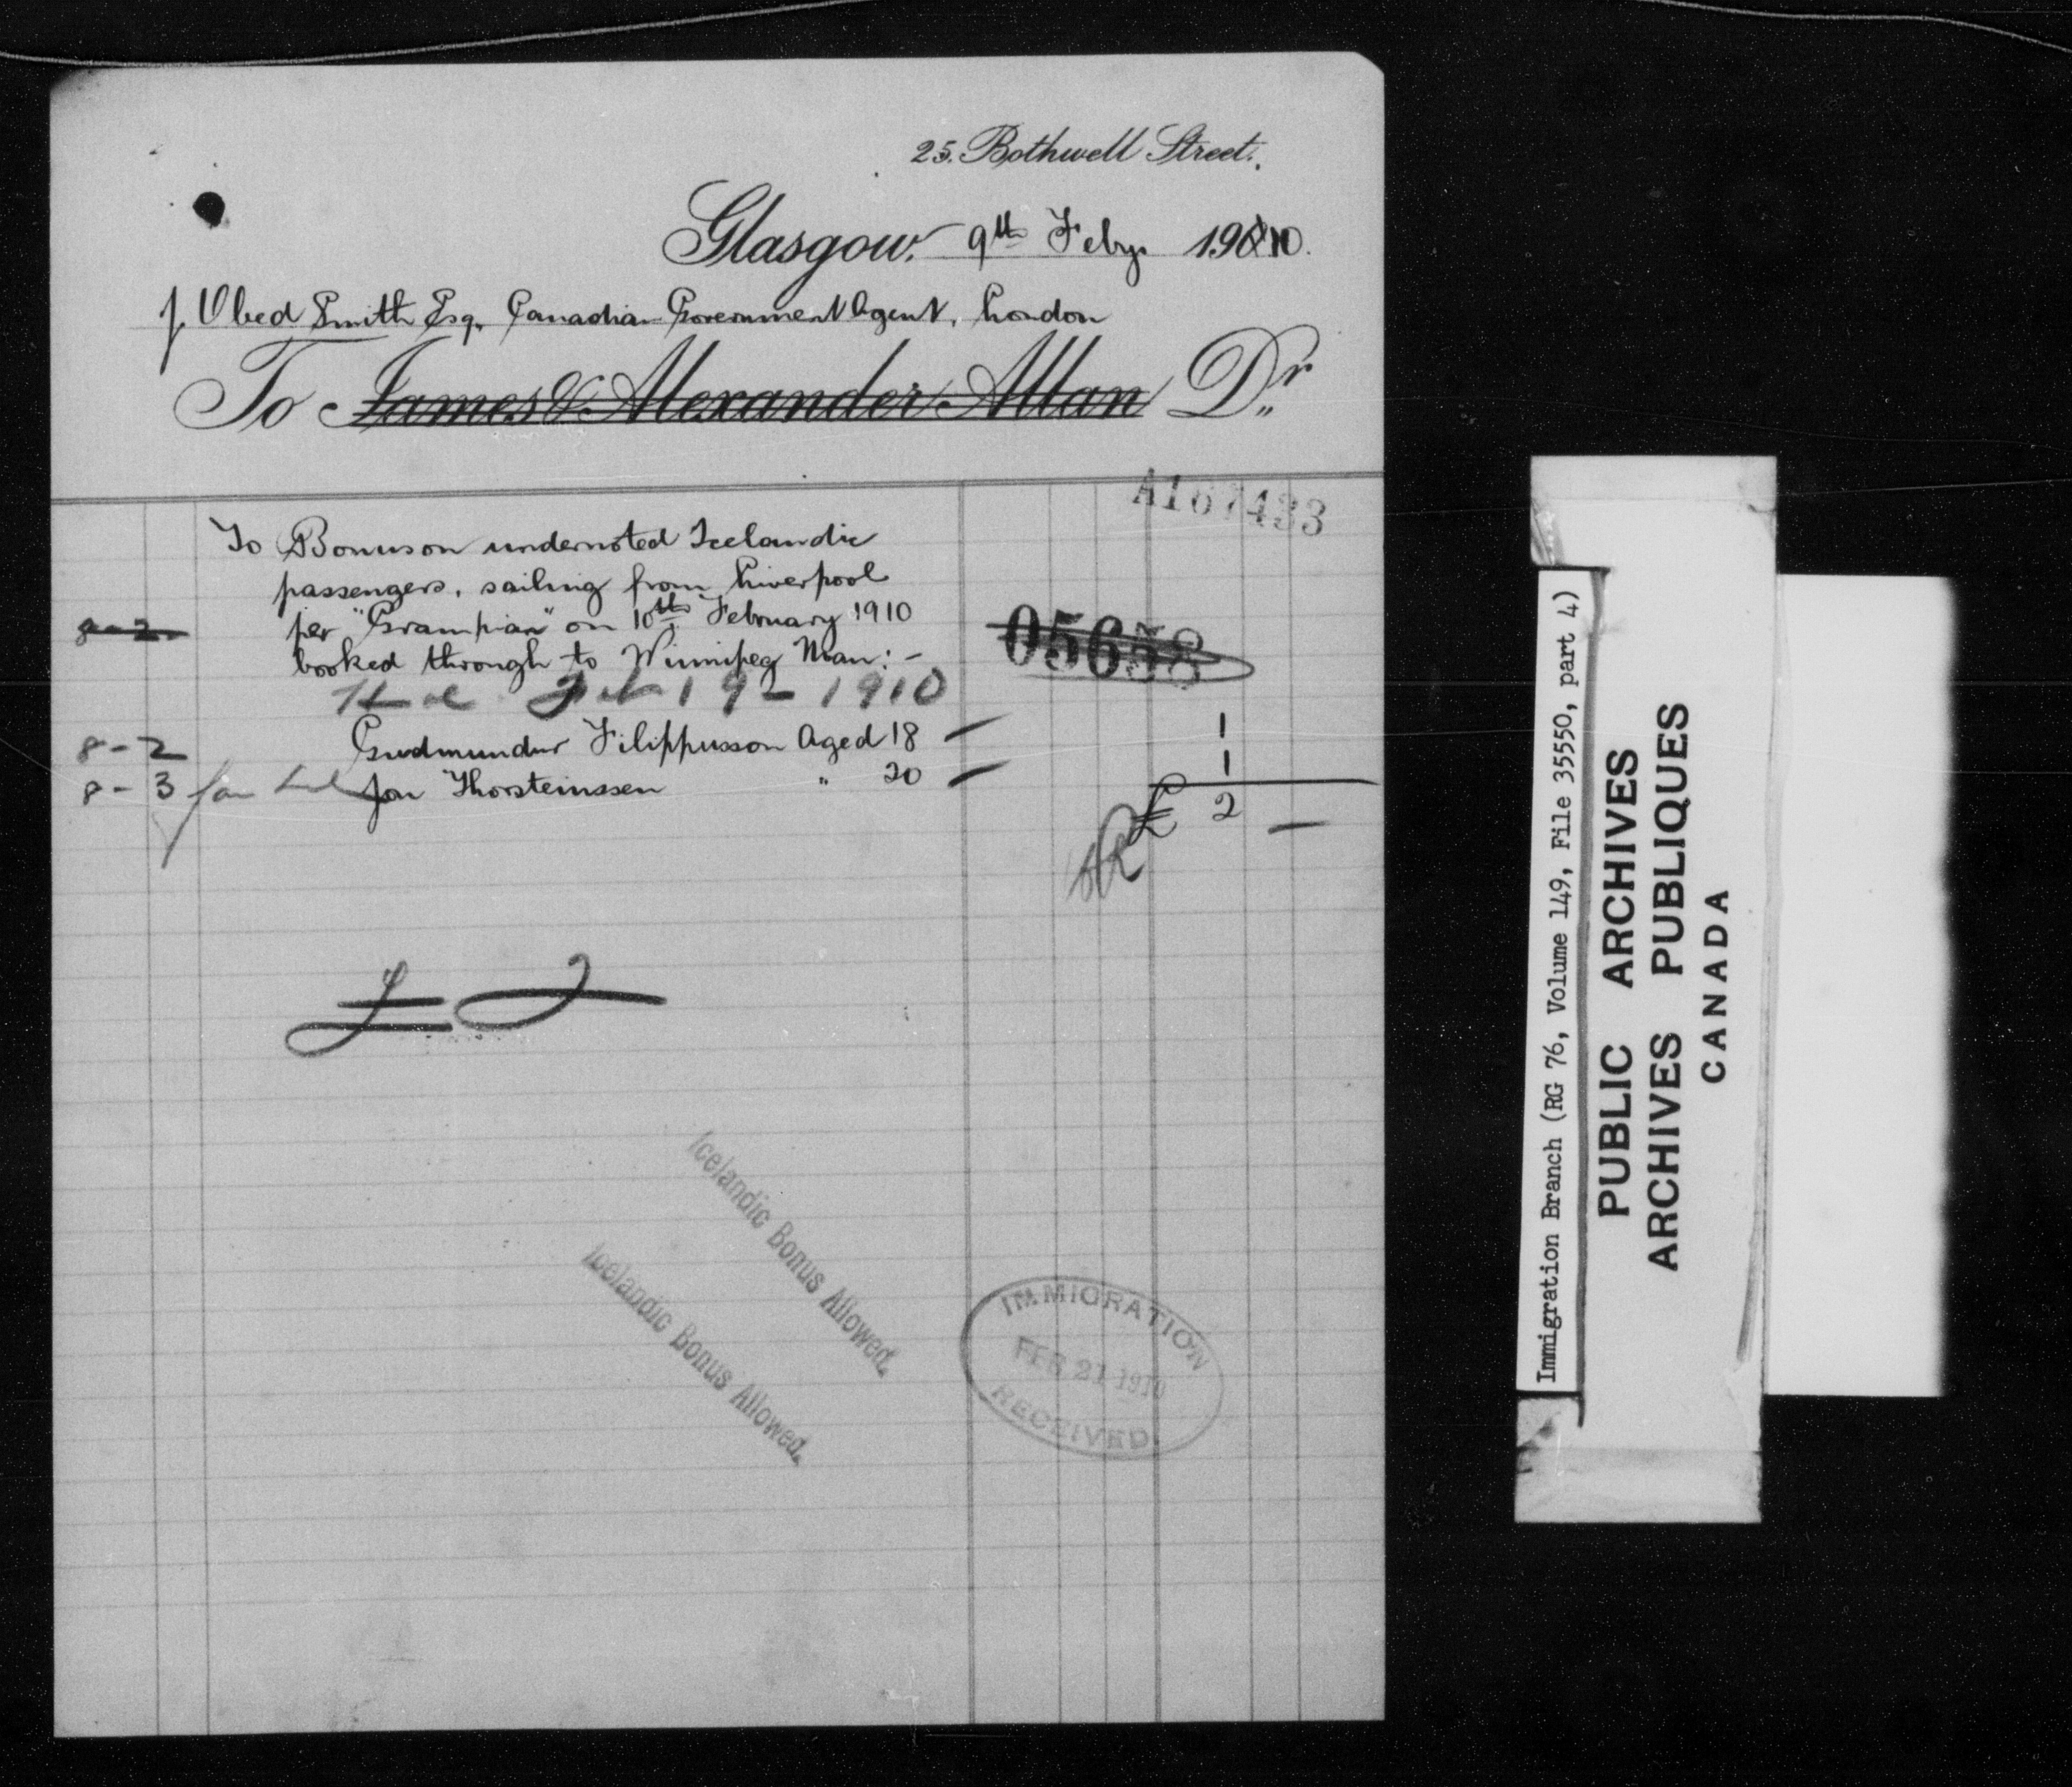 25. Bothwell Street.
Glasgow. 9th Feby. 1910.
J. Obed Smith Esq. Canadian Government Agent, London
To James & Alexander Allan Dr.
A167433
To Bonus on undernoted Icelandic
passengers, sailing from Liverpool
8-2 per "Grampian" on 10th February 1910
booked through to Winnipeg Man: -
05658
Feb 19 - 1910
8-2 Gudmundur Filippusson Aged 18 - 1
8-3 Jon Thorsteinssen " 20 - 1
£ 2 -
£2
Icelandic Bonus Allowed.
Icelandic Bonus Allowed.
IMMIGRATION
FEB 21 1910
RECEIVED.
Immigration Branch (RG 76, Volume 149, File 35550, part 4)
PUBLIC ARCHIVES
ARCHIVES PUBLIQUES
CANADA